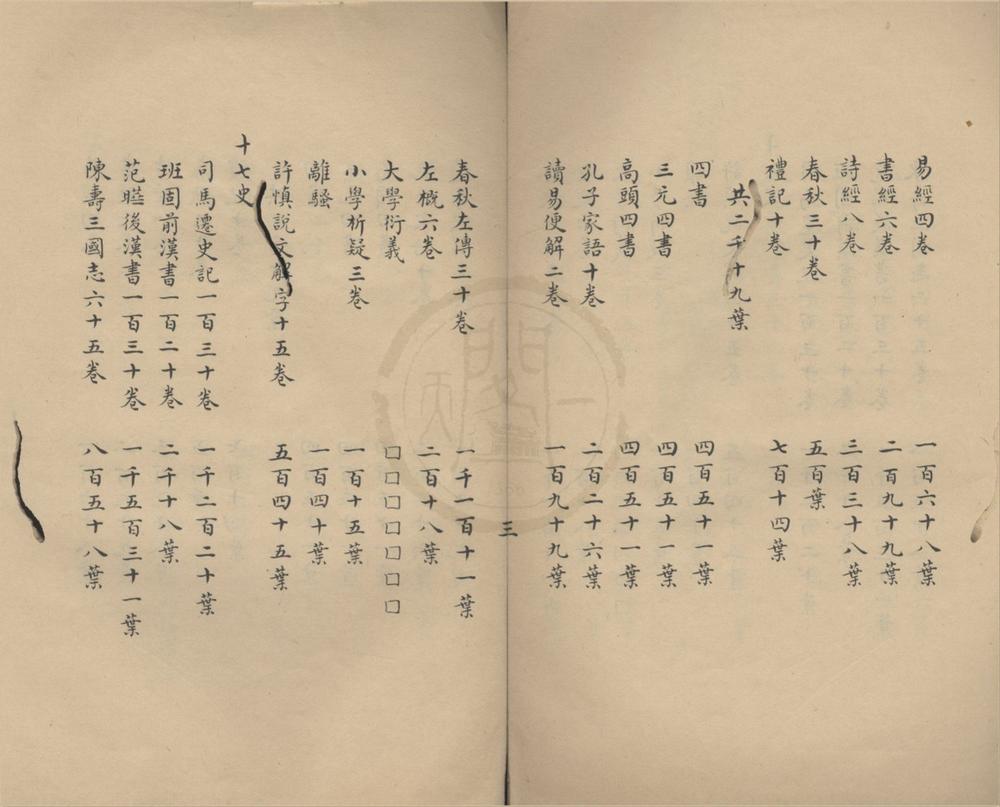 易經四卷 一百六十八葉
書經六卷 二百九十九葉
詩經八卷 三百三十八葉
春秋三十卷 五百葉
禮記十卷 七百十四葉
共二千十九葉
四書 四百五十一葉
三元四書 四百五十一葉
高頭四書 四百五十一葉
孔子家語十卷 二百二十六葉
讀易便解二卷 一百九十九葉
三
春秋左傳三十卷 一千一百十一葉
左概六卷 二百十八葉
大學衍義 □□□□□□□
小學析疑三卷 一百十五葉
離騷 一百四十葉
許慎說文解字十五卷 五百四十五葉
十七史
司馬遷史記一百三十卷 一千二百二十葉
班固前漢書一百二十卷 二千十八葉
范曄後漢書一百三十卷 一千五百三十一葉
陳壽三國志六十五卷 八百五十八葉